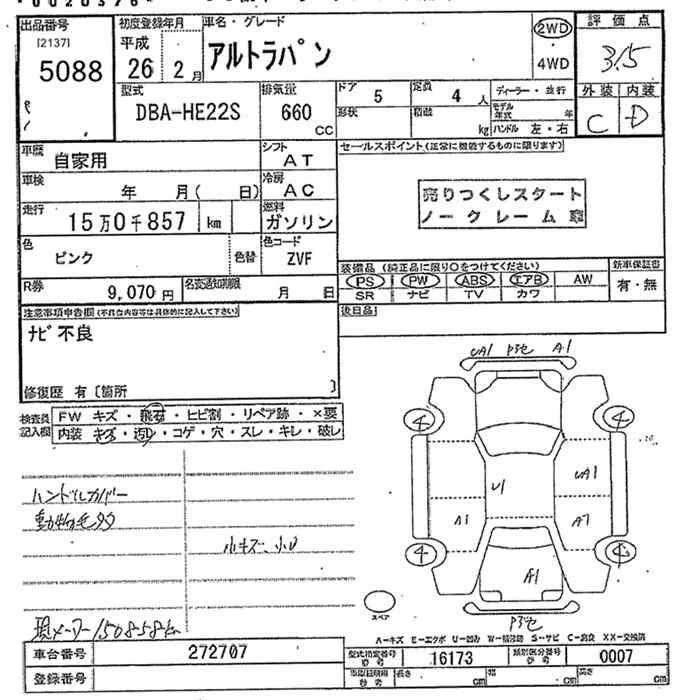 出品番号 初度登録年月 車名・グレード 2WD 評価点
[2137] 平成 アルトラパン 3.5
5088 26 2月 4WD
型式 排気量 ドア 5 定員 4人 ディーラー・並行 外装 内装
DBA-HE22S 660 CC 形状 積載 kg モデル年式 年 C D
ハンドル 左・右
車歴 自家用 シフト AT セールスポイント(正常に機能するものに限ります)
車検 年 月( 日) 冷房 AC 売りつくしスタート
走行 15万0千857 km 燃料 ガソリン ノークレーム
色 ピンク 色替 色コード ZVF
装備品(純正品に限り○をつけてください) 新車保証書
R券 9,070円 名変通知期限 月 日 PS PW ABS エアB AW 有・無
SR ナビ TV カワ
注意事項申告欄(不具合内容等は具体的に記入して下さい) 後日品
ナビ不良
修復歴 有〔箇所 〕
検査員記入欄 FW キズ・飛石・ヒビ割・リペア跡・×要
内装 キズ・汚れ・コゲ・穴・スレ・キレ・破レ
UA1 A1
4 4
U1 UA1
A1 A7
4 4
A1
ハンドルカバー
小キズ、小U
スペア
A-キズ E-エクボ U-凹み W-補修跡 S-サビ C-腐食 XX-交換済
車台番号 272707 型式指定番号 16173 類別区分番号 0007
登録番号 長さ cm 幅 cm 高さ cm